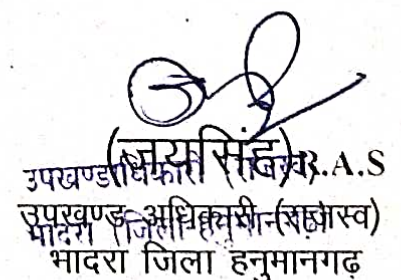 (जयसिंह)R.A.S
उपखण्डाधिकारी (राजस्व)
उपखण्ड अधिकारी (राजस्व)
भादरा (जिला हनुमानगढ़)
भादरा जिला हनुमानगढ़